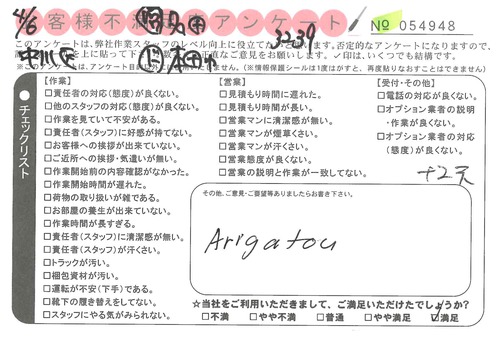 4/6
お客様不満足アンケート
№ 054948
このアンケートは、弊社作業スタッフのレベル向上に役立てな
います。否定的なアンケートになりますので、
直な意見をお願いします。✓印は、いくつでも結構です。
3239
中川区
【作業】
□責任者の対応(態度)が良くない。
□他のスタッフの対応(態度)が良くない。
□作業を見ていて不安がある。
□責任者(スタッフ)に好感が持てない。
□お客様への挨拶が出来ていない。
□ご近所への挨拶・気遣いが無い。
□作業開始前の内容確認がなかった。
□作業開始時間が遅れた。
□荷物の取り扱いが雑である。
□お部屋の養生が出来ていない。
□作業時間が長すぎる。
□責任者(スタッフ)に清潔感が無い。
□責任者(スタッフ)が汗くさい。
□トラックが汚い。
□梱包資材が汚い。
□運転が不安(下手)である。
□靴下の履き替えをしてない。
□スタッフにやる気がみられない。
【営業】
□見積もり時間に遅れた。
□見積もり時間が長い。
□営業マンに清潔感が無い。
□営業マンが煙草くさい。
□営業マンが汗くさい。
□営業態度が良くない。
□営業の説明と作業が一致してない。
【受付・その他】
□電話の対応が良くない。
□オプション業者の説明
・作業が良くない。
□オプション業者の対応
(態度)が良くない。
チェックリスト
その他、ご意見・ご要望等ありましたらお書き下さい。
Arigatou
☆当社をご利用いただきまして、ご満足いただけたでしょうか?
□不満 □やや不満 □普通 □やや満足 ☑満足